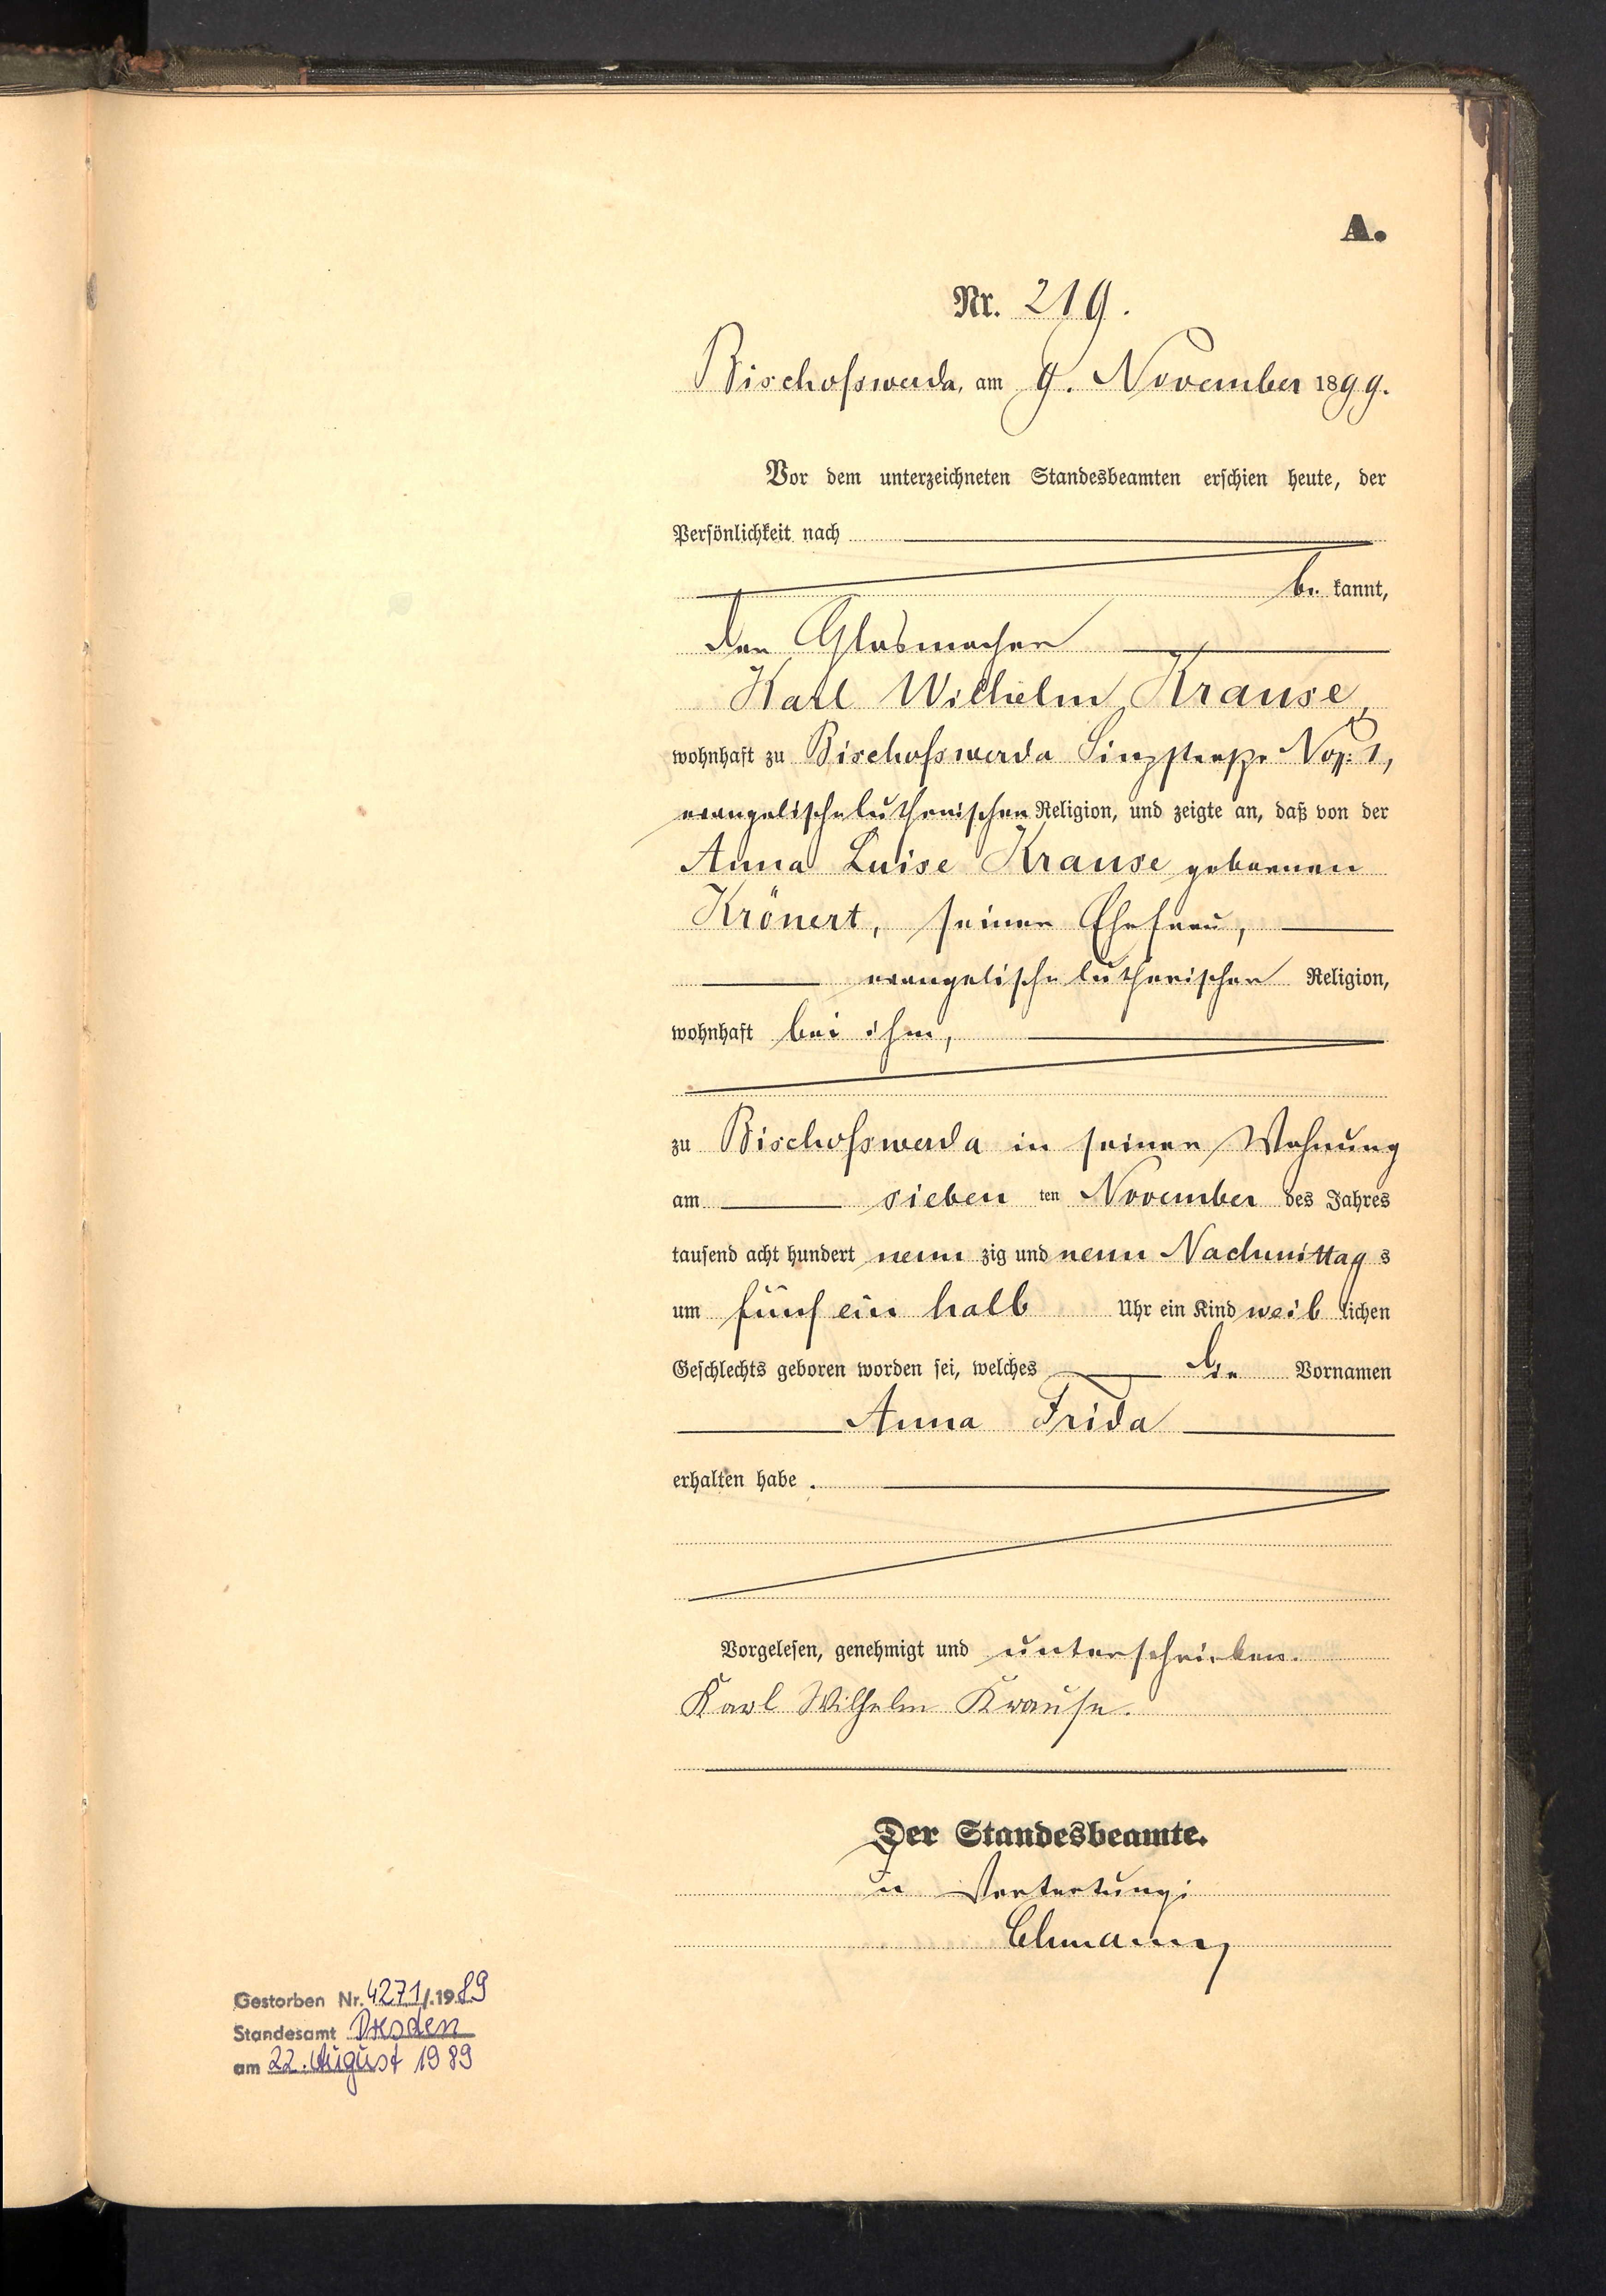 A.
Nr. 219.
Bischofswerda, am 9. November 1899.
Vor dem unterzeichneten Standesbeamten erschien heute, der
Persönlichkeit nach
be kannt,
der Glasmacher
Karl Wilhelm Krause,
wohnhaft zu Bischofswerda 1,
evangelisch-lutherischer Religion, und zeigte an, daß von der
Anna Luise Krause gebornen
Krönert, seiner Ehefrau,
evangelisch-lutherischer Religion,
wohnhaft bei ihm,
zu Bischofswerda in seiner Wohnung
am sieben ten November des Jahres
tausend acht hundert neun zig und neun Nachmittag s
um fünf ein halb Uhr ein Kind weib lichen
Geschlechts geboren worden sei, welches die Vornamen
Anna Frida
erhalten habe.
Vorgelesen, genehmigt und unterschrieben.
Karl Wilhelm Krause.
Der Standesbeamte.
In Vertretung:
Gestorben Nr. 4271/.1989
Standesamt Dresden
am 22. August 1989